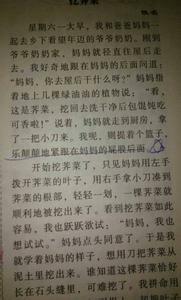 挖荠菜
星期六一大早，我和爸爸妈妈一
起去乡下看望年迈的爷爷奶奶。刚到
爷爷奶奶家，妈妈就径直往屋后走
去。我好奇地跟在妈妈的后面问道：
“妈妈，你去屋后干什么呀？”妈妈指
着地上几棵绿油油的植物说：“看，
这是荠菜，挖回去洗干净后包馄饨吃
可香啦！”说着，妈妈就走到厨房，拿
了一把小刀来。我呢，则提着个篮子，
乐颠颠地紧跟在妈妈的屁股后面
开始挖荠菜了，只见妈妈用左手
拨开荠菜的叶子，用右手拿小刀凑到
荠菜的根部，轻轻一划，一棵荠菜就
顺利地被挖出来了。看到挖荠菜如此
容易，我也跃跃欲试：“妈妈，我也
想试试。”妈妈点头同意了。于是我
就学着妈妈的样子，想用刀把荠菜从
泥土里挖出来。谁知道这棵荠菜恰好
长在石头缝里，可难挖了。我拼命用